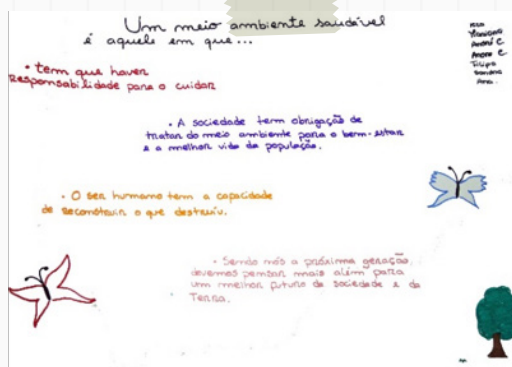 Um meio ambiente saudável
é aquele em que...
• tem que haver
Responsabilidade para o cuidar
• A sociedade tem obrigação de
tratar do meio ambiente para o bem-estar
e a melhor vida da população.
• O ser humano tem a capacidade
de reconstruir o que destruiu.
• Sendo nós a próxima geração,
devemos pensar mais além para
um melhor futuro da sociedade e da
Terra.
André C
Filipa
Ana.